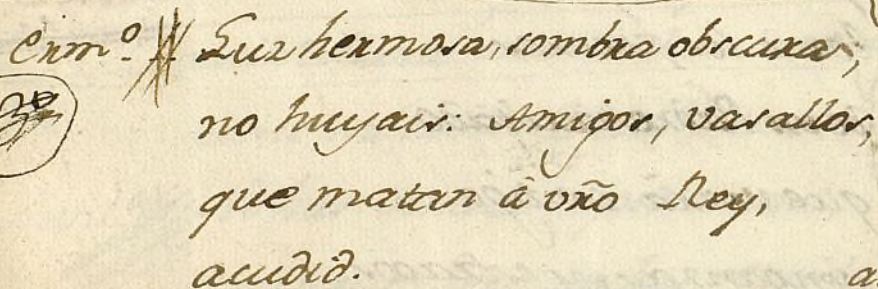 Erm.º Luz hermosa, sombra obscura,
no huyais: Amigos, vasallos,
que matan â vrõ Rey,
acudid. a